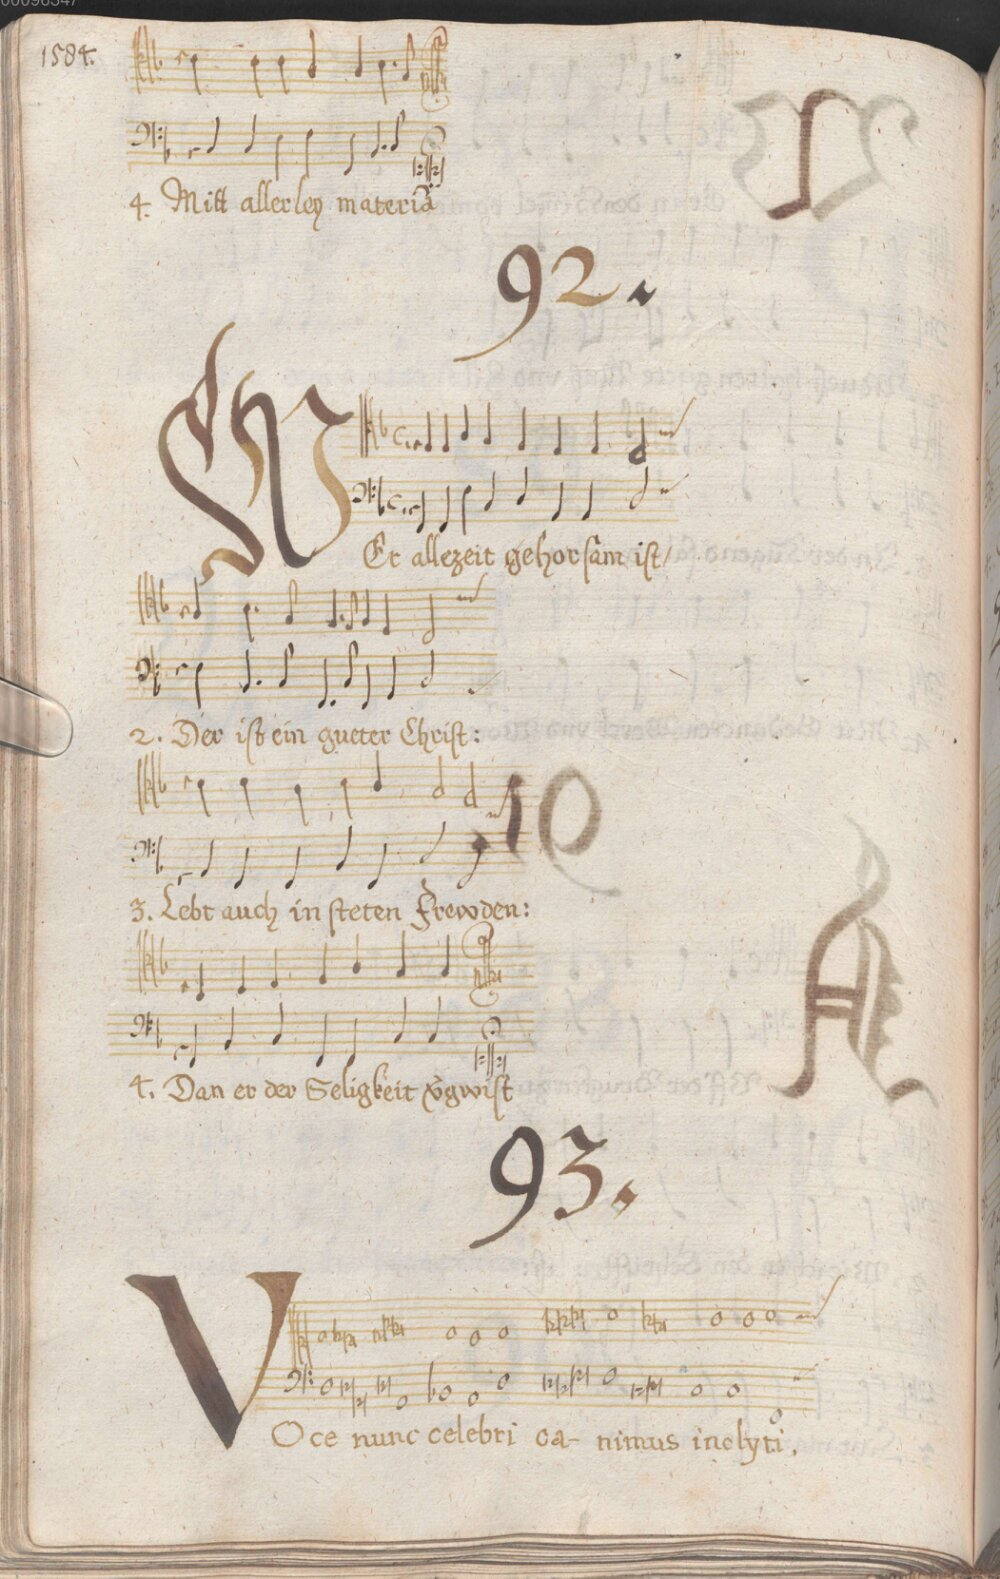 00096347
1584.
4. Mitt allerley materiā
92.
WEr allezeit gehorsam ist/
2. Der ist ein gueter Christ:
3. Lebt auch in steten Frewden:
4. Dan er der Seligkeit v̄gwist
93.
VOce nunc celebri ca- nimus inclyti.